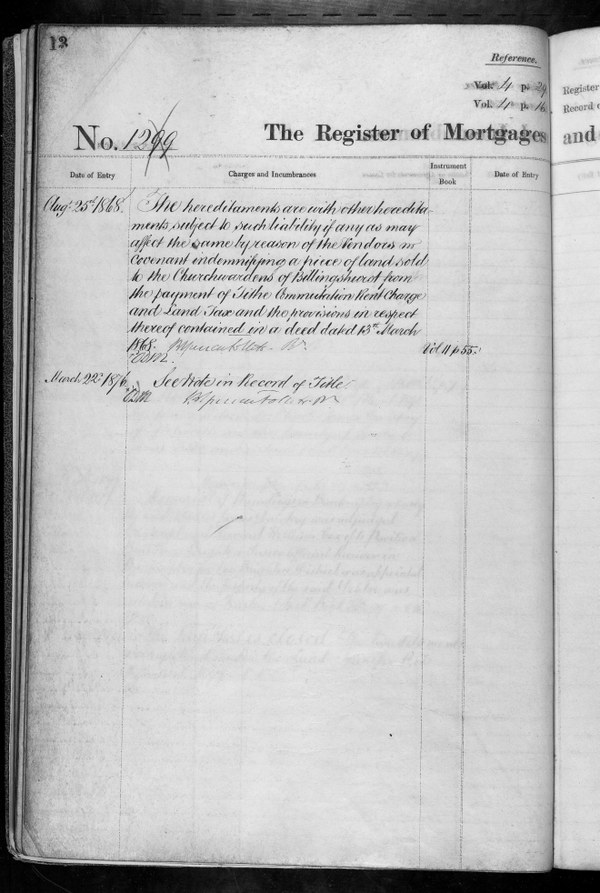 13
Reference.
Vol. 4 p. 29
Vol. 4 p. 16
No. 1299
The Register of Mortgages
Date of Entry
Charges and Incumbrances
Instrument
Book
Date of Entry
Augt. 25th 1868.
The hereditaments are with other heredita-
ments, subject to such liability if any as may
affect the same by reason of the Vendors
Covenant indemnifying a piece of land sold
to the Churchwardens of Billingshurst from
the payment of Tithe Commutation Rent Charge
and Land Tax and the provisions in respect
thereof contained in a deed dated 13th March
1868.
Vol 11 p 55.
March 22d 1876
See Note in Record of Title
Register
Record o
and